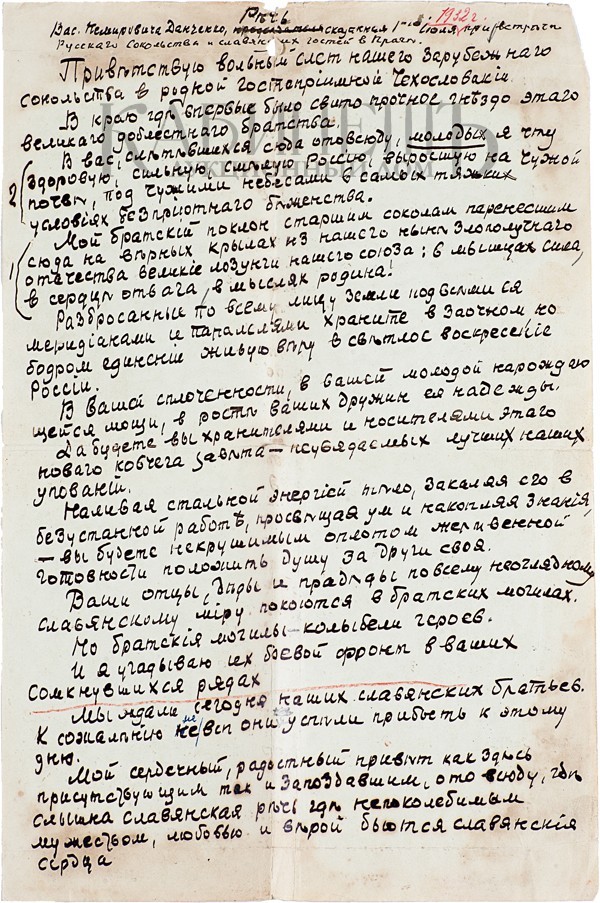 Рѣчь
1932 г.
Вас. Немировича Данченко, сказанная 1-го Июля при встрѣчи
Русскаго Сокольства и славянских гостей в Праги.
Привѣтствую вольный слет нашего Зарубежнаго
сокольства в родной гостепріимной Чехословакіи.
В краю гдѣ впервые было свито прочное гнѣздо этаго
великаго доблестнаго братства.
В вас, слѣтѣвшихся сюда отовсюду, молодых, я чту
2 здоровую, сильную, смѣлую Россію, выросшую на чужой
почвѣ, под чужими небесами в самых тяжких
условіях безпріютнаго бѣженства.
Мой братскій поклон старшим соколам перенесшим
1 сюда на вѣрных крылах из нашего нынѣ злополучнаго
отечества великіе лозунги нашего союза: в мышцах сила,
в сердцѣ отвага, в мыслях родина!
Разбросанные по всему лицу Земли под всѣми ея
меридіанами и параллелями храните в заочном но
бодром единеніе живую вѣру в свѣтлое воскресеніе
Россіи.
В вашей сплоченности, в вашей молодой нарождаю
щейся мощи, в ростѣ ваших дружин ея надежды.
Да будете вы хранителями и носителями этаго
новаго ковчега завѣта — неувядаемых лучших наших
упованій.
Наливая стальной энергіей тѣло, закаляя его в
безустанной работѣ, просвѣщая ум и накопляя знанія,
— вы будете некрушимым оплотом жертвенной
готовности положить душу за други своя.
Ваши отцы, дѣды и прадѣды по всему неоглядному
славянскому міру покоются в братских могилах.
Но братскія могилы — колыбели героев.
И я угадываю их боевой фронт в ваших
сомкнувшихся рядах
Мы ждали сегодня наших славянских братьев.
К сожалѣнію не всѣ они успѣли прибыть к этому
дню.
Мой сердечный, радостный привѣт как здѣсь
присутствующим так и запоздавшим, отовсюду, гдѣ
слышна славянская рѣчь гдѣ непоколебимым
мужеством, любовью и вѣрой бьются славянскія
сердца
КАБИНЕТЪ
АУКЦИОННЫЙ ДОМ